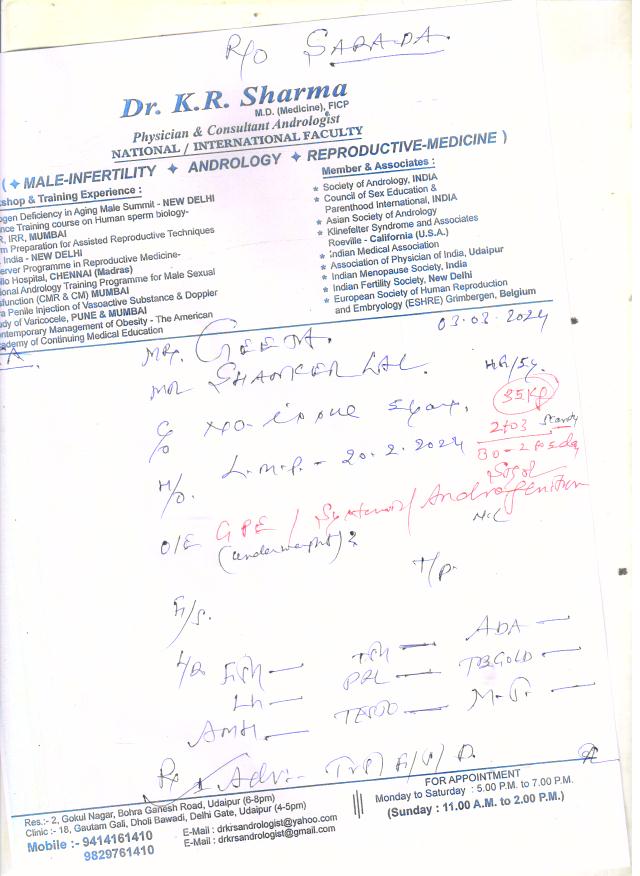 R/O SARADA.
Dr. K.R. Sharma
M.D. (Medicine), FICP
Physician & Consultant Andrologist
NATIONAL / INTERNATIONAL FACULTY
( ✦ MALE-INFERTILITY ✦ ANDROLOGY ✦ REPRODUCTIVE-MEDICINE )
shop & Training Experience :
ogen Deficiency in Aging Male Summit - NEW DELHI
nce Training course on Human sperm biology-
R, IRR, MUMBAI
m Preparation for Assisted Reproductive Techniques
India - NEW DELHI
erver Programme in Reproductive Medicine-
llo Hospital, CHENNAI (Madras)
ional Andrology Training Programme for Male Sexual
sfunction (CMR & CM) MUMBAI
a Penile Injection of Vasoactive Substance & Doppler
dy of Varicocele, PUNE & MUMBAI
ntemporary Management of Obesity - The American
cademy of Continuing Medical Education
Member & Associates :
* Society of Andrology, INDIA
* Council of Sex Education &
Parenthood International, INDIA
* Asian Society of Andrology
* Klinefelter Syndrome and Associates
Roeville - California (U.S.A.)
* Indian Medical Association
* Association of Physician of India, Udaipur
* Indian Menopause Society, India
* Indian Fertility Society, New Delhi
* European Society of Human Reproduction
and Embryology (ESHRE) Grimbergen, Belgium
03.03.2024
Mrs. GEETA.
Mr SHANKER LAL.
35Kg
C/o no-issue 5year.
H/o. L.m.p. - 20.2.2024
O/E GPE / Systemic /
(underweight)
T/P.
F/S.
FSH — TSH — ADA —
LH — PRL — TBGOLD —
AMH — TESTO — M.T. —
Rx Advi-
Res.:- 2, Gokul Nagar, Bohra Ganesh Road, Udaipur (6-8pm)
Clinic :- 18, Gautam Gali, Dholi Bawadi, Delhi Gate, Udaipur (4-5pm)
Mobile :- 9414161410
9829761410
E-Mail : drkrsandrologist@yahoo.com
E-Mail : drkrsandrologist@gmail.com
FOR APPOINTMENT
Monday to Saturday : 5.00 P.M. to 7.00 P.M.
(Sunday : 11.00 A.M. to 2.00 P.M.)